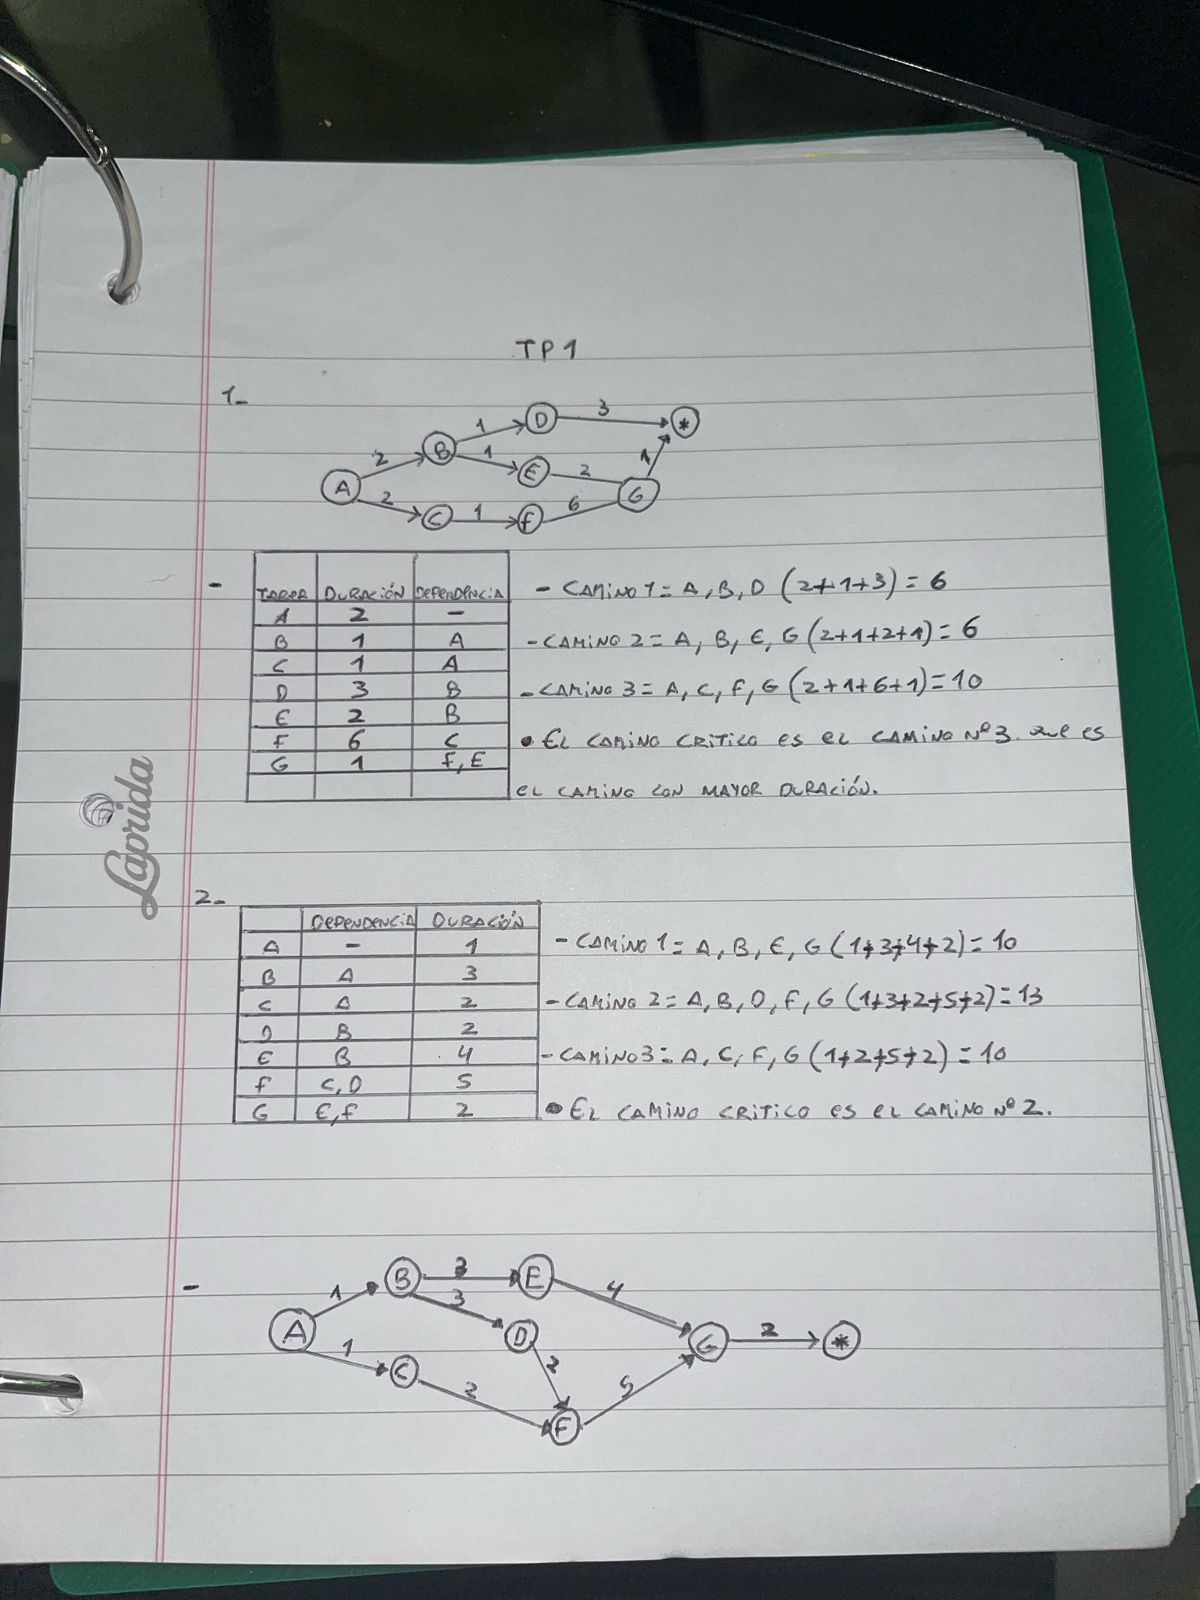 TP1
1-
A 2 B 1 D 3 *
1 E 2 G 1
2 C 1 F 6
- TAREA DURACIÓN DEPENDENCIA
A 2 -
B 1 A
C 1 A
D 3 B
E 2 B
F 6 C
G 1 F, E
- CAMINO 1 = A, B, D (2+1+3) = 6
- CAMINO 2 = A, B, E, G (2+1+2+1) = 6
- CAMINO 3 = A, C, F, G (2+1+6+1) = 10
• EL CAMINO CRITICO ES EL CAMINO Nº3. QUE ES
EL CAMINO CON MAYOR DURACIÓN.
Laprida
2-
DEPENDENCIA DURACIÓN
A - 1
B A 3
C A 2
D B 2
E B 4
F C, D 5
G E, F 2
- CAMINO 1 = A, B, E, G (1+3+4+2) = 10
- CAMINO 2 = A, B, D, F, G (1+3+2+5+2) = 13
- CAMINO 3 = A, C, F, G (1+2+5+2) = 10
• EL CAMINO CRITICO ES EL CAMINO Nº 2.
-
A 1 B 3 E 4 G 2 *
3 D 2
1 C 2 F 5